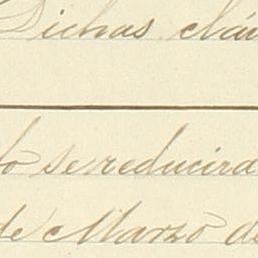 Dichas cláu
lo se reducira
de Marzo de